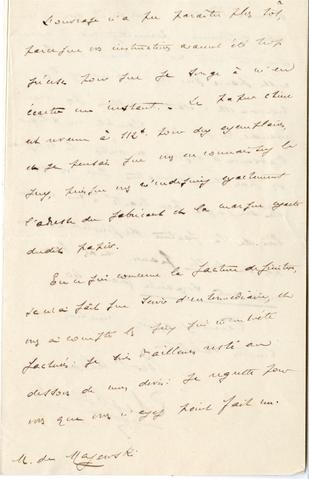 L'ouvrage n'a pu paraître plus tôt,
parce que vos instructions avaient été trop
précises pour que je songe à m'en
écarter un instant. - Le papier chine
est revenu à 112f. pour dix exemplaires,
et je pensais que vous en connaissiez le
prix, puisque vous m'indiquiez exactement
l'adresse du fabricant et la marque exacte
dudit papier.
En ce qui concerne la facture définitive,
je n'ai fait que servir d'intermédiaire, et
vous ai compté les prix qui m'ont été
facturés: je suis d'ailleurs resté au
dessous de mes devis: je regrette pour
vous que vous n'ayez point fait un.
M. de Majewski